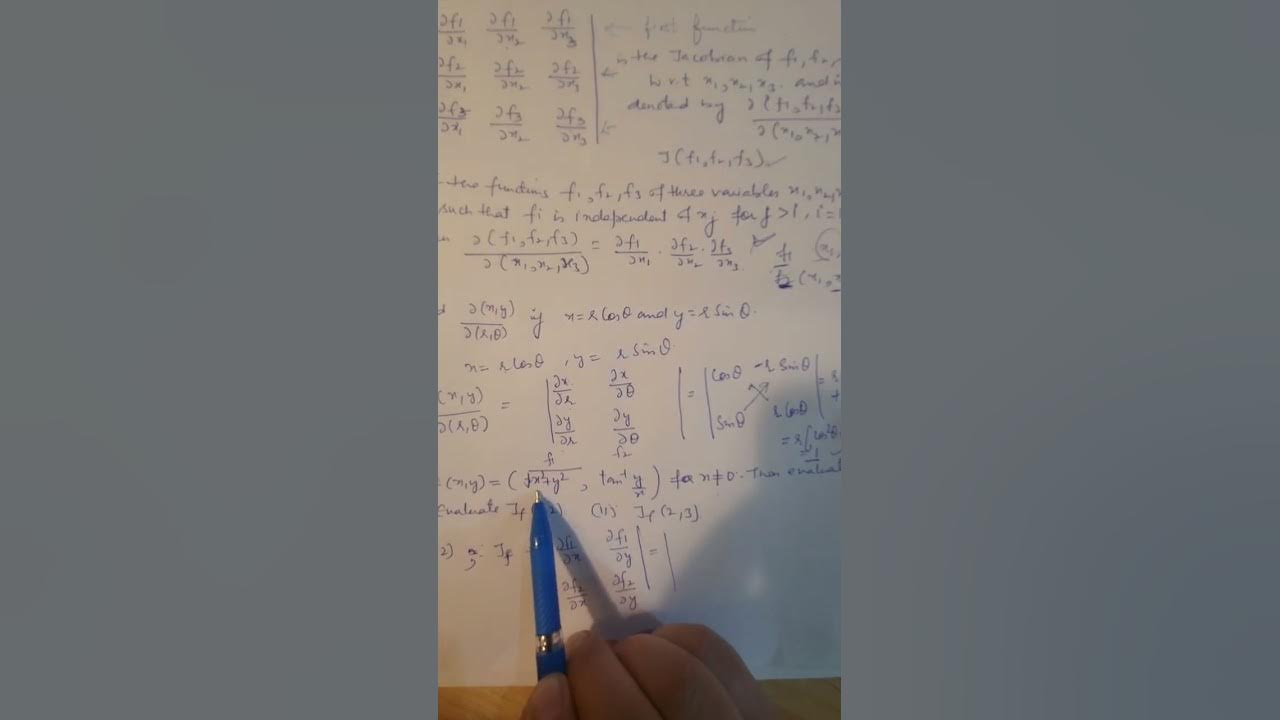 ∂f1/∂x1 ∂f1/∂x2 ∂f1/∂x3 ← first function
∂f2/∂x1 ∂f2/∂x2 ∂f2/∂x3 ← is the Jacobian of f1, f2,
w.r.t x1, x2, x3. and
∂f3/∂x1 ∂f3/∂x2 ∂f3/∂x3 denoted by ∂(f1, f2, f3/∂(x1, x2, x
J(f1, f2, f3) ✓
the functions f1, f2, f3 of three variables x1, x2,
such that fi is independent of xj for j > i, i =
∂(f1, f2, f3)/∂(x1, x2, x3) = ∂f1/∂x1 · ∂f2/∂x2 · ∂f3/∂x3 ✓ f1 (x1,
f2 (x1, x
∂(x,y)/∂(r,θ) if x = r Cosθ and y = r Sinθ.
x = r Cosθ, y = r Sinθ.
(x,y)/∂(r,θ) = | ∂x/∂r ∂x/∂θ | = | Cosθ -r Sinθ | = r
∂y/∂r ∂y/∂θ Sinθ r Cosθ
= r [Cos²θ
f1 f2 1
(x,y) = (√x²+y², tan⁻¹ y/x) for x≠0. Then evaluate
Evaluate Jf ( 2) (ii) Jf (2,3)
2) Jf ∂f1/∂x ∂f1/∂y | = |
∂f2/∂x ∂f2/∂y